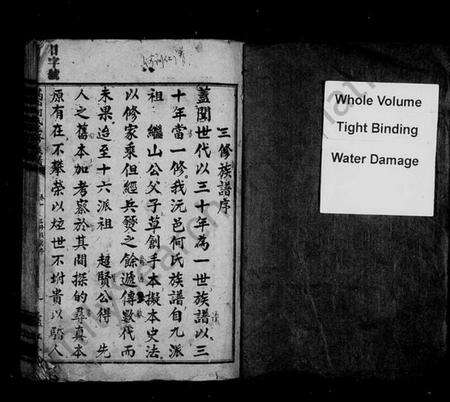 三修族譜序
蓋聞世代以三十年為一世族譜以三
十年當一修我沅邑何氏族譜自九派
祖 繼山公父子草創手本擬本史法
以修家乘但經兵發之餘遞傳數代而
未果迨至十六派祖 超賢公得 先
人之舊本加考察於其間探的尋真本
原有在不攀榮以炫世不坿貴以驕人
日字號
Whole Volume
Tight Binding
Water Damage